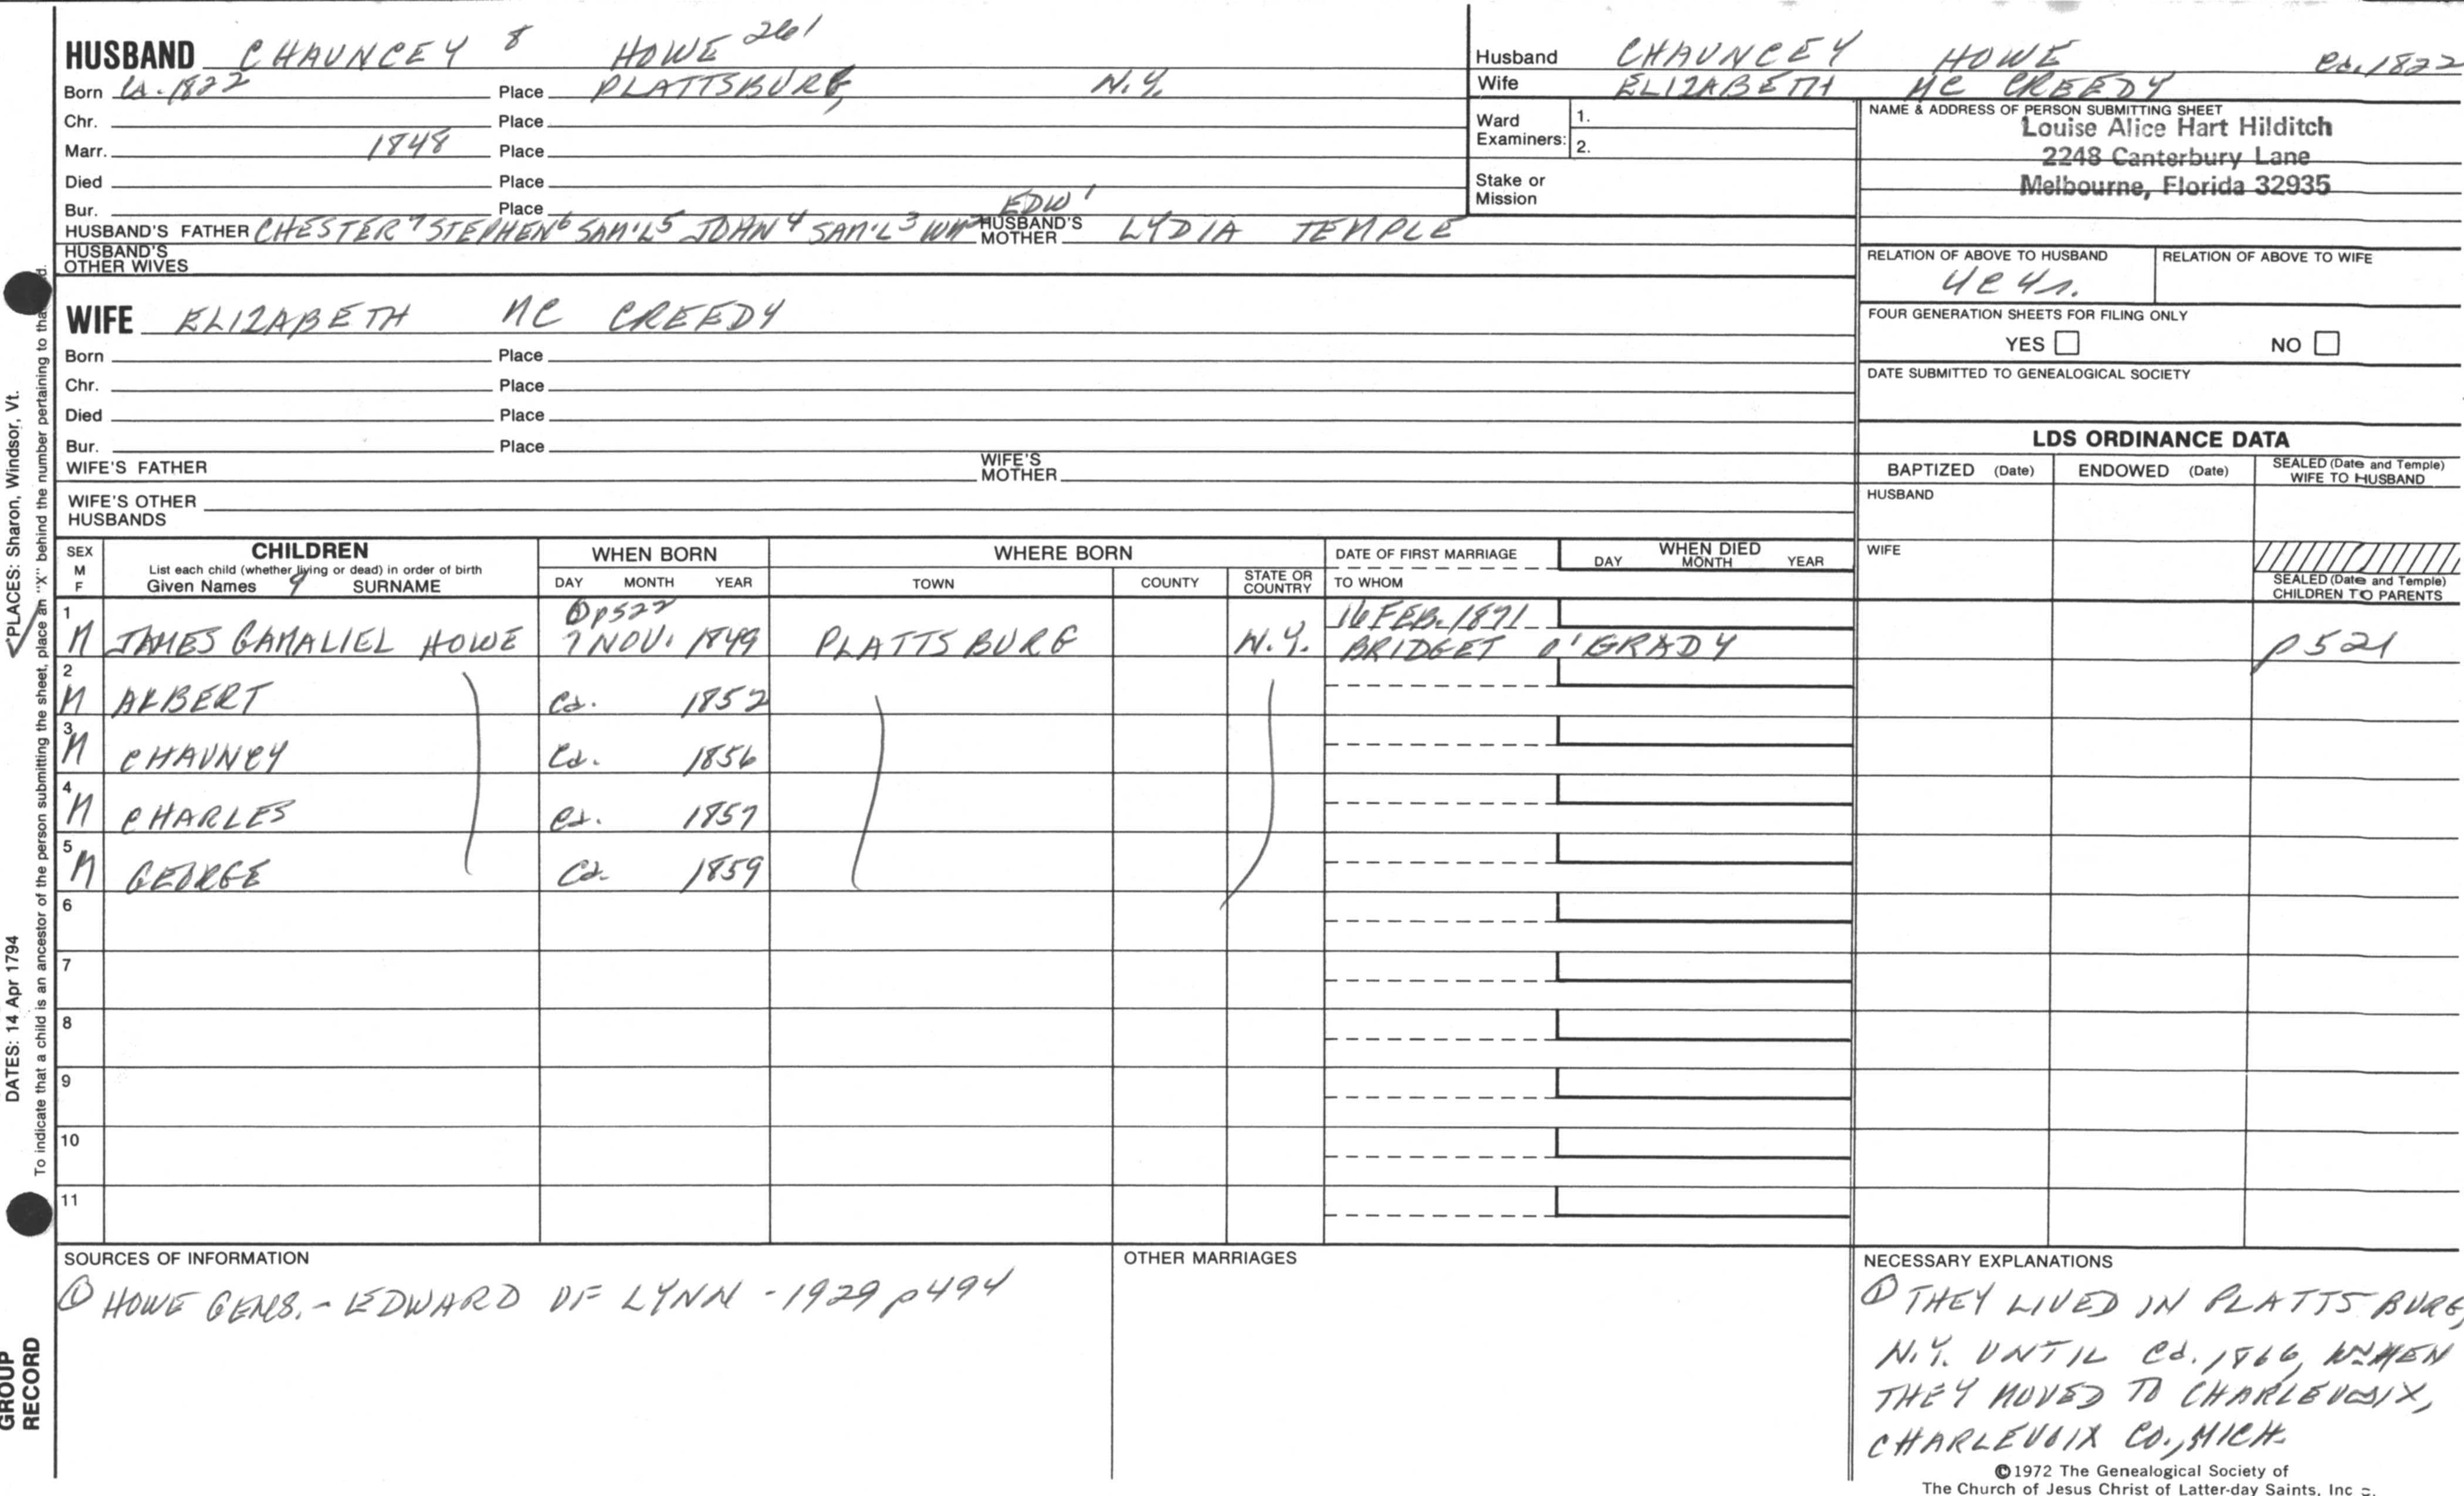 HUSBAND CHAUNCEY 8 HOWE 261
Born Ca. 1822 Place PLATTSBURG, N.Y.
Chr. Place
Marr. 1848 Place
Died Place
Bur. Place
HUSBAND'S FATHER CHESTER 7 STEPHEN 6 SAM'L 5 JOHN 4 SAM'L 3 WM 2 EDW 1 HUSBAND'S MOTHER LYDIA TEMPLE
HUSBAND'S OTHER WIVES
WIFE ELIZABETH MC CREEDY
Born Place
Chr. Place
Died Place
Bur. Place
WIFE'S FATHER WIFE'S MOTHER
WIFE'S OTHER HUSBANDS
Husband CHAUNCEY HOWE Ca. 1822
Wife ELIZABETH MC CREEDY
Ward Examiners: 1.
2.
Stake or Mission
NAME & ADDRESS OF PERSON SUBMITTING SHEET
Louise Alice Hart Hilditch
2248 Canterbury Lane
Melbourne, Florida 32935
RELATION OF ABOVE TO HUSBAND RELATION OF ABOVE TO WIFE
FOUR GENERATION SHEETS FOR FILING ONLY
YES NO
DATE SUBMITTED TO GENEALOGICAL SOCIETY
LDS ORDINANCE DATA
BAPTIZED (Date) ENDOWED (Date) SEALED (Date and Temple) WIFE TO HUSBAND
HUSBAND
WIFE
SEALED (Date and Temple) CHILDREN TO PARENTS
SEX M F
CHILDREN
List each child (whether living or dead) in order of birth
Given Names 9 SURNAME
WHEN BORN
DAY MONTH YEAR
WHERE BORN
TOWN COUNTY STATE OR COUNTRY
DATE OF FIRST MARRIAGE
TO WHOM
WHEN DIED
DAY MONTH YEAR
1 ① p522 16 FEB. 1871
M JAMES GAMALIEL HOWE 7 NOV. 1849 PLATTSBURG N.Y. BRIDGET O'GRADY p521
2 M ALBERT Ca. 1852
3 M CHAUNCY Ca. 1856
4 M CHARLES Ca. 1857
5 M GEORGE Ca. 1859
6
7
8
9
10
11
SOURCES OF INFORMATION
① HOWE GENS. - EDWARD OF LYNN - 1929 p494
OTHER MARRIAGES
NECESSARY EXPLANATIONS
① THEY LIVED IN PLATTSBURG,
N.Y. UNTIL Ca. 1866, WHEN
THEY MOVED TO CHARLEVOIX,
CHARLEVOIX CO., MICH.
©1972 The Genealogical Society of
The Church of Jesus Christ of Latter-day Saints, Inc
PLACES: Sharon, Windsor, Vt.
DATES: 14 Apr 1794
To indicate that a child is an ancestor of the person submitting the sheet, place an "X" behind the number pertaining to
GROUP
RECORD